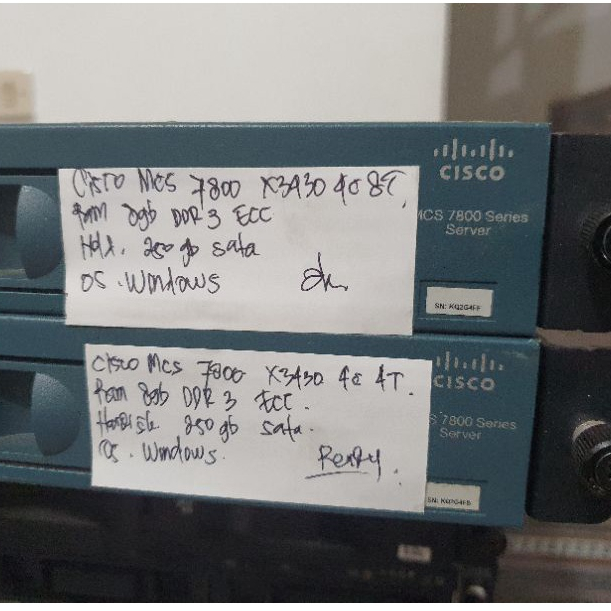 CISCO
MCS 7800 Series
Server
Cisco Mcs 7800 X3430 4c 8T.
Ram 8gb DDR 3 ECC
Hdd. 250 gb sata
OS. Windows
ok
CISCO
S 7800 Series
Server
Cisco Mcs 7800 X3430 4c 4T.
Ram 8gb DDR 3 ECC.
Hardisk 250 gb sata.
OS. Windows.
Ready.